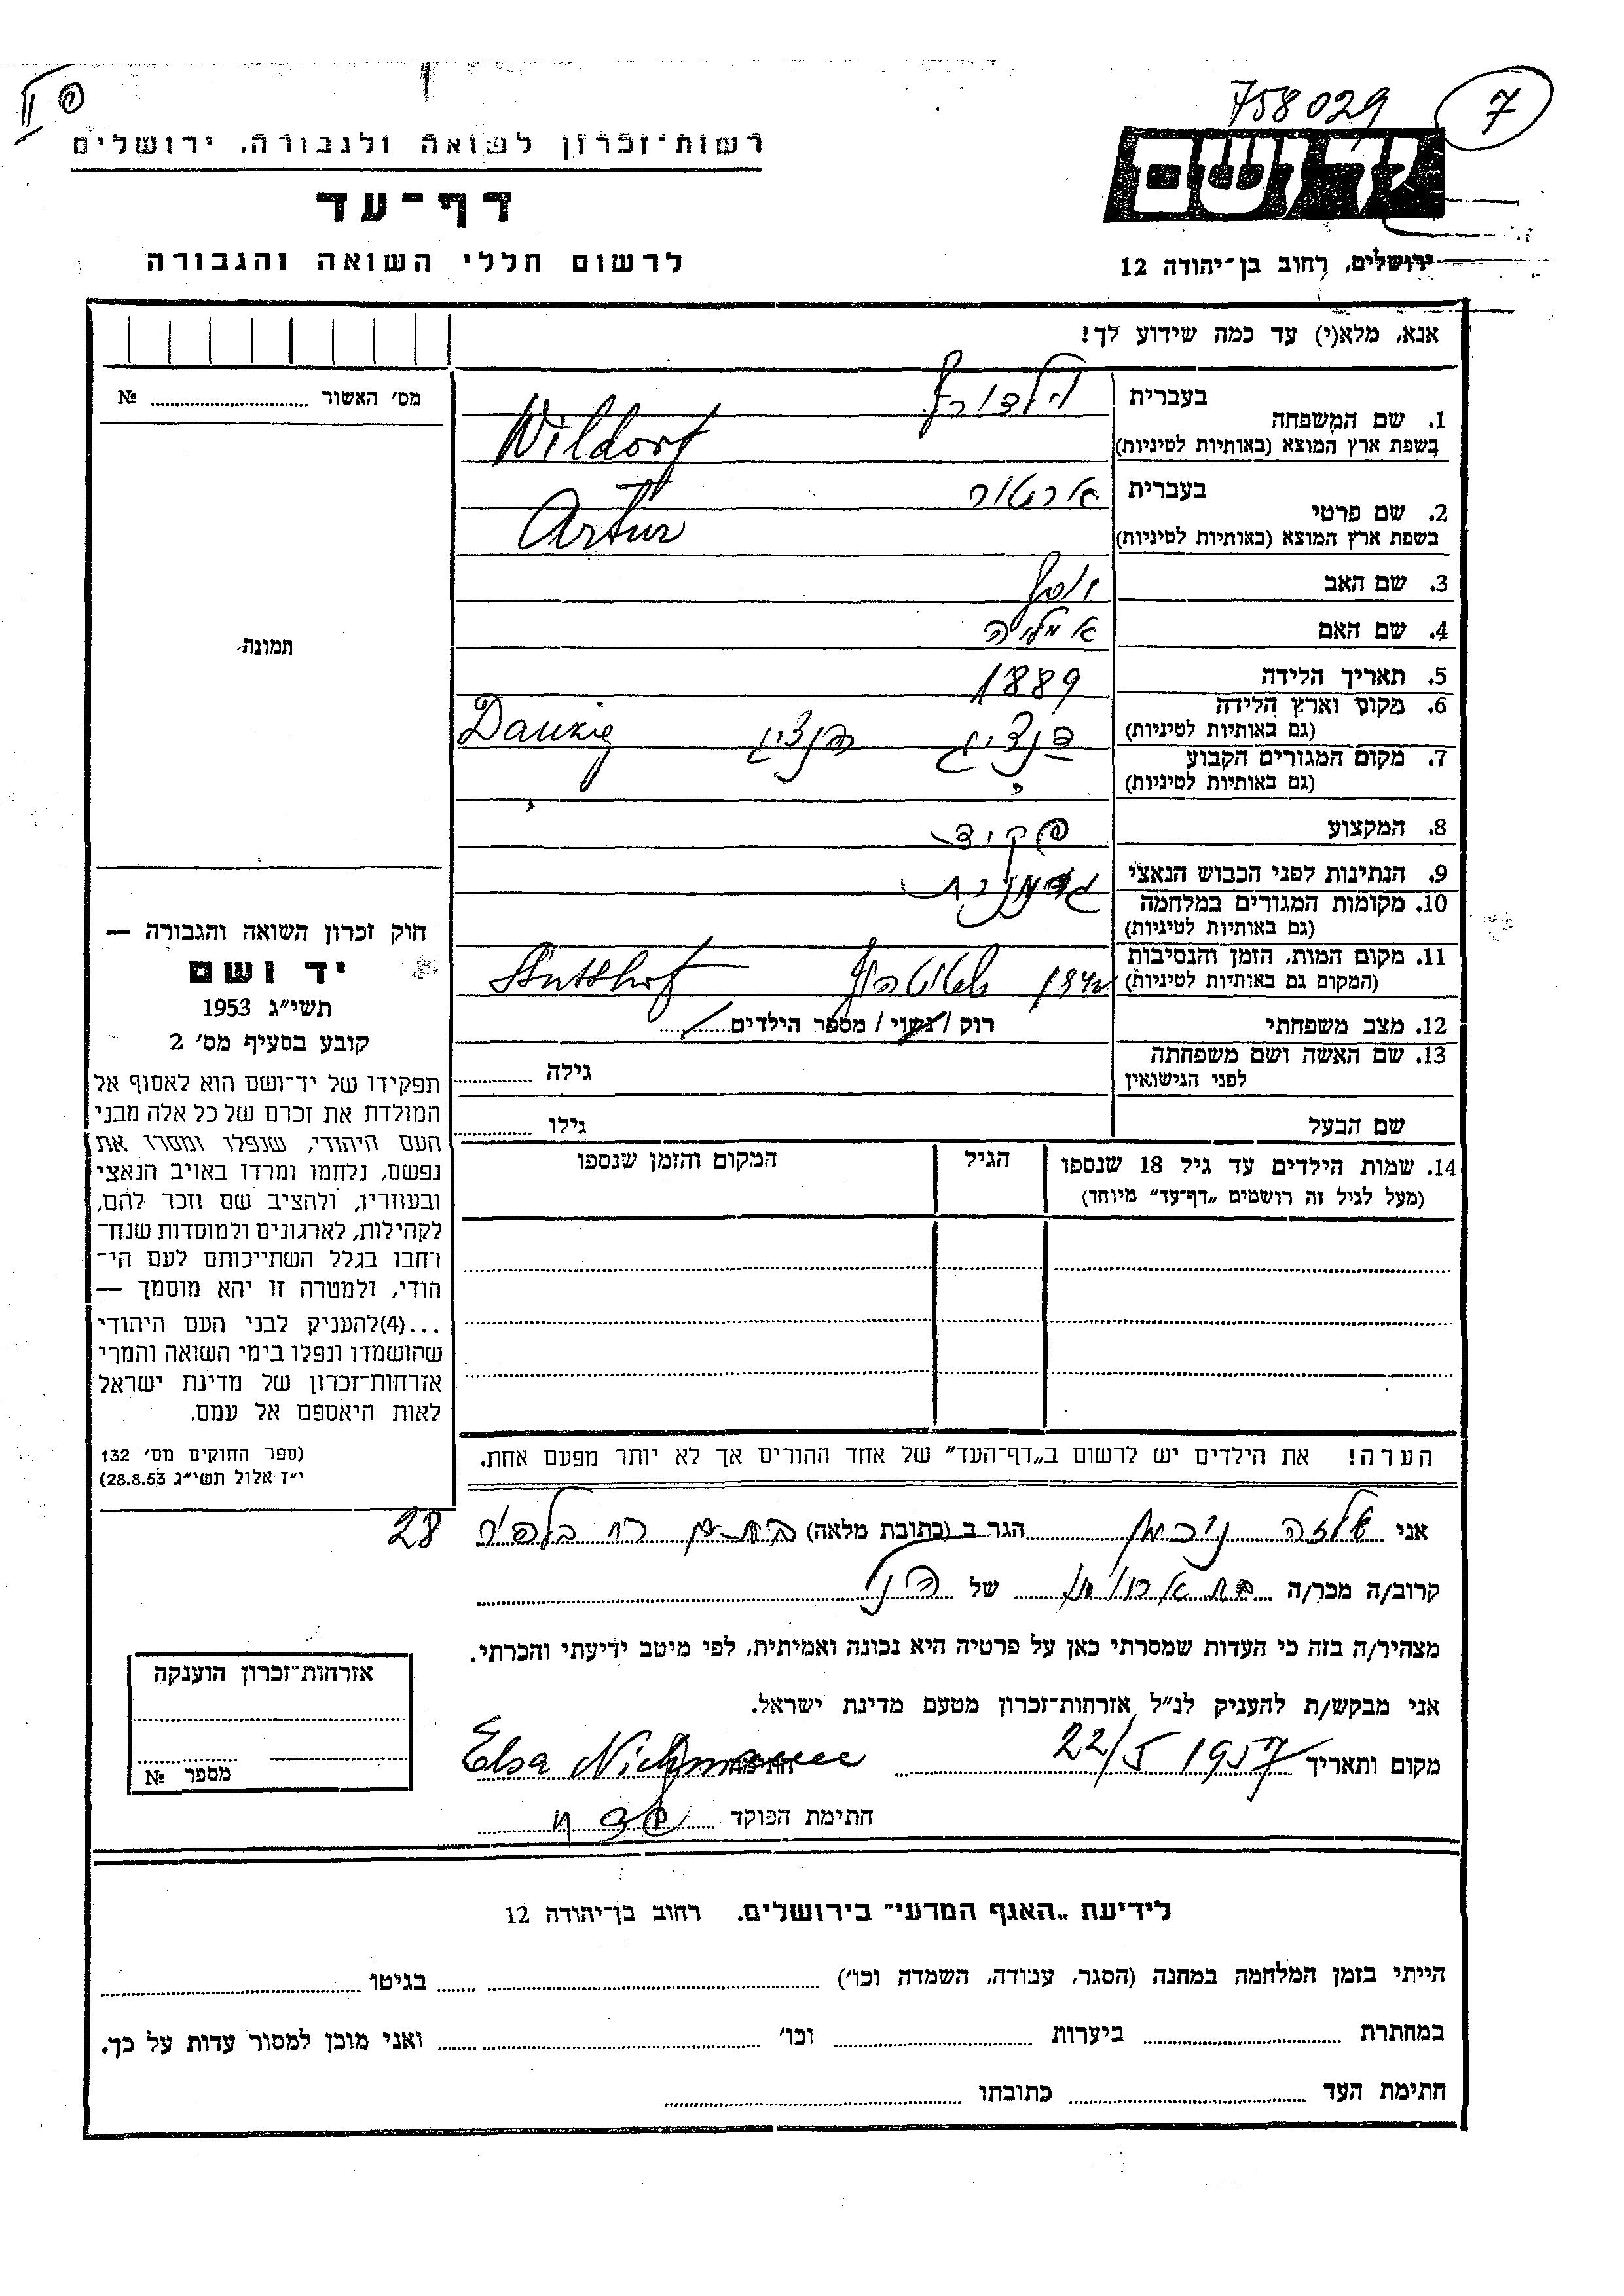 758029
7
רשות־זכרון לשואה ולגבורה, ירושלים
יד ושם
דף־עד
לרשום חללי השואה והגבורה
ירושלים, רחוב בן־יהודה 12
אנא, מלא(י) עד כמה שידוע לך!
מס׳ האשור № 
1. שם המשפחה
בעברית וילדורף
בשפת ארץ המוצא (באותיות לטיניות) Wildorf
2. שם פרטי
בעברית ארטור
בשפת ארץ המוצא (באותיות לטיניות) Artur
3. שם האב יוסף
4. שם האם אמליה
5. תאריך הלידה 1889
6. מקום וארץ הלידה
(גם באותיות לטיניות) דנציג דנציג Danzig
7. מקום המגורים הקבוע
(גם באותיות לטיניות)
8. המקצוע פקיד
9. הנתינות לפני הכבוש הנאצי גרמנית
10. מקומות המגורים במלחמה
(גם באותיות לטיניות)
11. מקום המות, הזמן והנסיבות
(המקום גם באותיות לטיניות) שטוטהוף Stutthof
12. מצב משפחתי רוק / נשוי / מספר הילדים
13. שם האשה ושם משפחתה
לפני הנישואין גילה
שם הבעל גילו
14. שמות הילדים עד גיל 18 שנספו
(מעל לגיל זה רושמים „דף־עד״ מיוחד)
הגיל
המקום והזמן שנספו
תמונה
חוק זכרון השואה והגבורה —
יד ושם
תשי״ג 1953
קובע בסעיף מס׳ 2
תפקידו של יד־ושם הוא לאסוף אל
המולדת את זכרם של כל אלה מבני
העם היהודי, שנפלו ומסרו את
נפשם, נלחמו ומרדו באויב הנאצי
ובעוזריו, ולהציב שם וזכר להם,
לקהילות, לארגונים ולמוסדות שנח־
רחבו בגלל השתייכותם לעם הי־
הודי, ולמטרה זו יהא מוסמך —
...(4)להעניק לבני העם היהודי
שהושמדו ונפלו בימי השואה והמרי
אזרחות־זכרון של מדינת ישראל
לאות היאספם אל עמם.
(ספר החוקים מס׳ 132
י״ז אלול תשי״ג 28.8.53)
הערה! את הילדים יש לרשום ב„דף־העד״ של אחד ההורים אך לא יותר מפעם אחת.
אני אלזה ניכמן הגר ב (כתובת מלאה) רח בלפור 28
קרוב/ה מכר/ה של
מצהיר/ה בזה כי העדות שמסרתי כאן על פרטיה היא נכונה ואמיתית, לפי מיטב ידיעתי והכרתי.
אני מבקש/ת להעניק לנ״ל אזרחות־זכרון מטעם מדינת ישראל.
מקום ותאריך 22/5 1957 חתימה Elsa Nichmann
חתימת הפוקד
אזרחות־זכרון הוענקה
מספר №
לידיעת „האגף המדעי״ בירושלים, רחוב בן־יהודה 12
הייתי בזמן המלחמה במחנה (הסגר, עבודה, השמדה וכו׳) בגיטו
במחתרת ביערות וכו׳ ואני מוכן למסור עדות על כך.
חתימת העד כתובתו